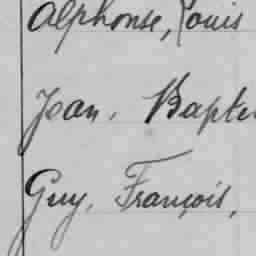 Alphonse, Louis
Jean, Baptis
Guy, François,